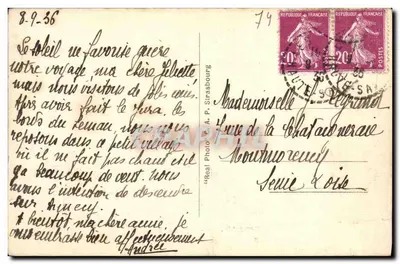 8-9-36
Le soleil ne favorise guère
notre voyage, ma chère Félicité,
mais nous visitons de jolis coins
après avoir fait le Jura, les
bords du Léman, nous nous
reposons dans ce petit village
où il ne fait pas chaud car il
y a beaucoup de vent. Nous
avons l'intention de descendre
sur Annecy.
A bientôt, ma chère amie, je
vous embrasse bien affectueusement
Andrée
"Real Photo" C.A.P. Strasbourg
74
REPUBLIQUE FRANÇAISE REPUBLIQUE FRANÇAISE
20c 20c
POSTES
Mademoiselle
rue de la Chataigneraie
Montmorency
Seine & Oise